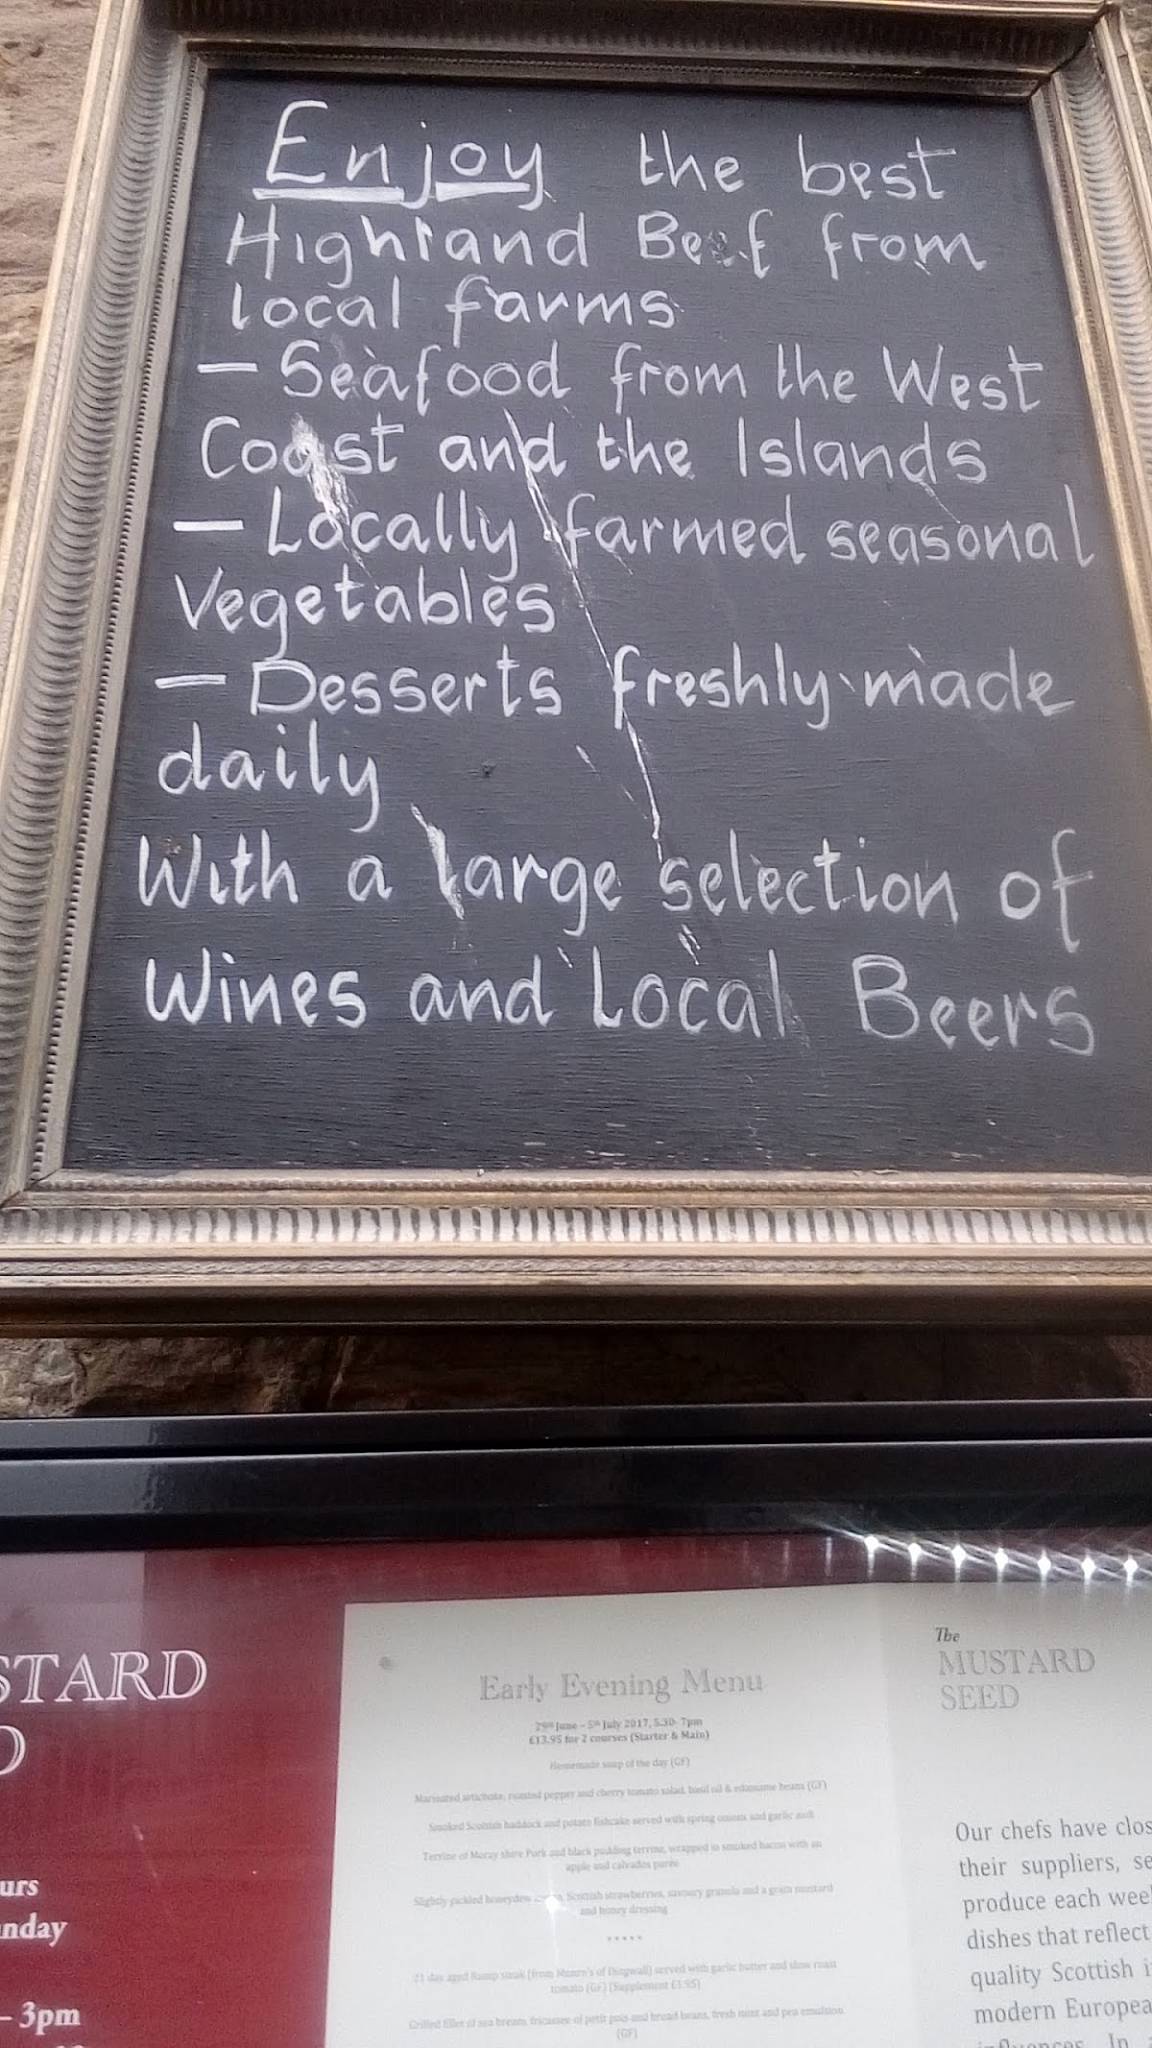 Enjoy the best
Highland Beef from
local farms
— Seafood from the West
Coast and the Islands
— Locally farmed seasonal
Vegetables
— Desserts freshly made
daily
With a large selection of
Wines and Local Beers
STARD
D
urs
nday
– 3pm
Early Evening Menu
29th June – 5th July 2017, 5.30- 7pm
£13.95 for 2 courses (Starter & Main)
Homemade soup of the day (GF)
Marinated artichoke, roasted pepper and cherry tomato salad, basil oil & edamame beans (GF)
Smoked Scottish haddock and potato fishcake served with spring onions and garlic aioli
Terrine of Moray shire Pork and black pudding terrine, wrapped in smoked bacon with an
apple and calvados purée
Slightly pickled honeydew Scottish strawberries, savoury granola and a grain mustard
and honey dressing
*****
21 day aged Rump steak (from Munro's of Dingwall) served with garlic butter and slow roast
tomato (GF) (Supplement £3.95)
Grilled fillet of sea bream, fricassee of petit pois and broad beans, fresh mint and pea emulsion
(GF)
The
MUSTARD
SEED
Our chefs have clos
their suppliers, se
produce each wee
dishes that reflect
quality Scottish i
modern Europea
influences. In